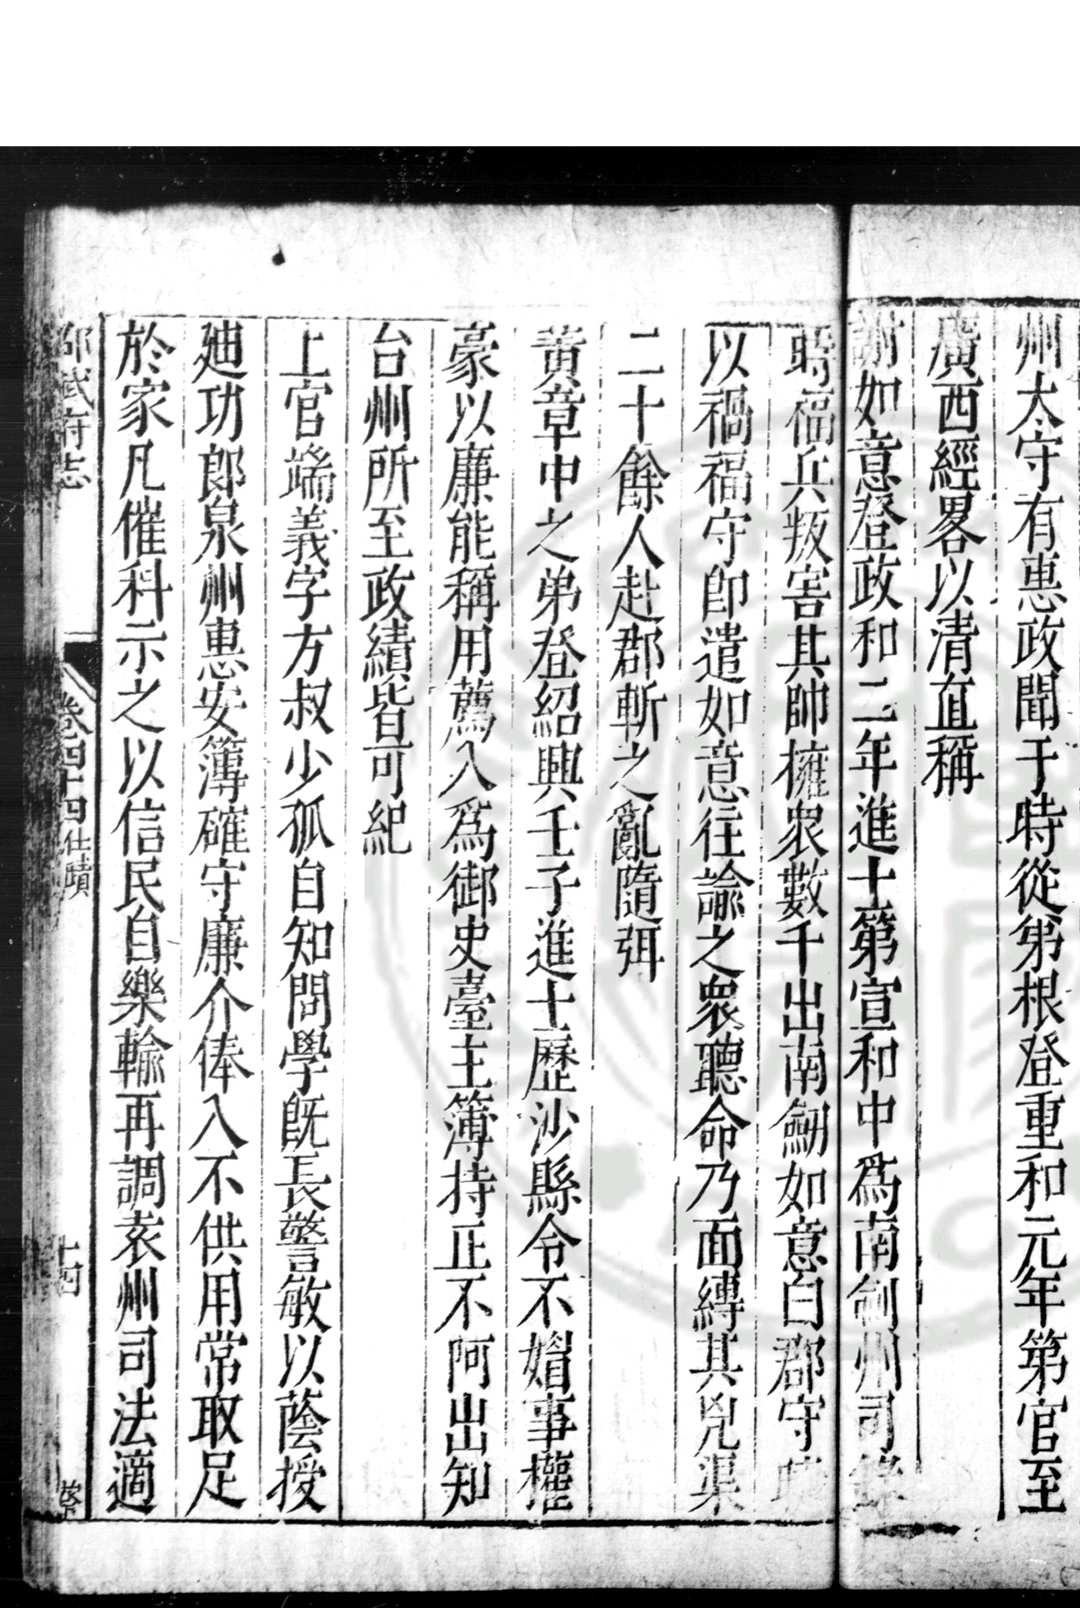 州太守有惠政聞于時從弟根登重和元年第官至
廣西經畧以清直稱
謝如意登政和二年進士第宣和中爲南劍州司
時福兵叛害其帥擁衆數千出南劒如意白郡守
以禍福守卽遣如意往諭之衆聽命乃面縛其兇渠
二十餘人赴郡斬之亂隨弭
黄章中之弟登紹興壬子進士歷沙縣令不媚事權
豪以廉能稱用薦入爲御史臺主簿持正不阿出知
台州所至政績皆可紀
上官端義字方叔少孤自知問學旣長警敏以蔭授
廸功郎泉州惠安簿確守廉介俸入不供用常取足
於家凡催科示之以信民自樂輸再調袁州司法適
邵武府志
卷四十四仕蹟
十四